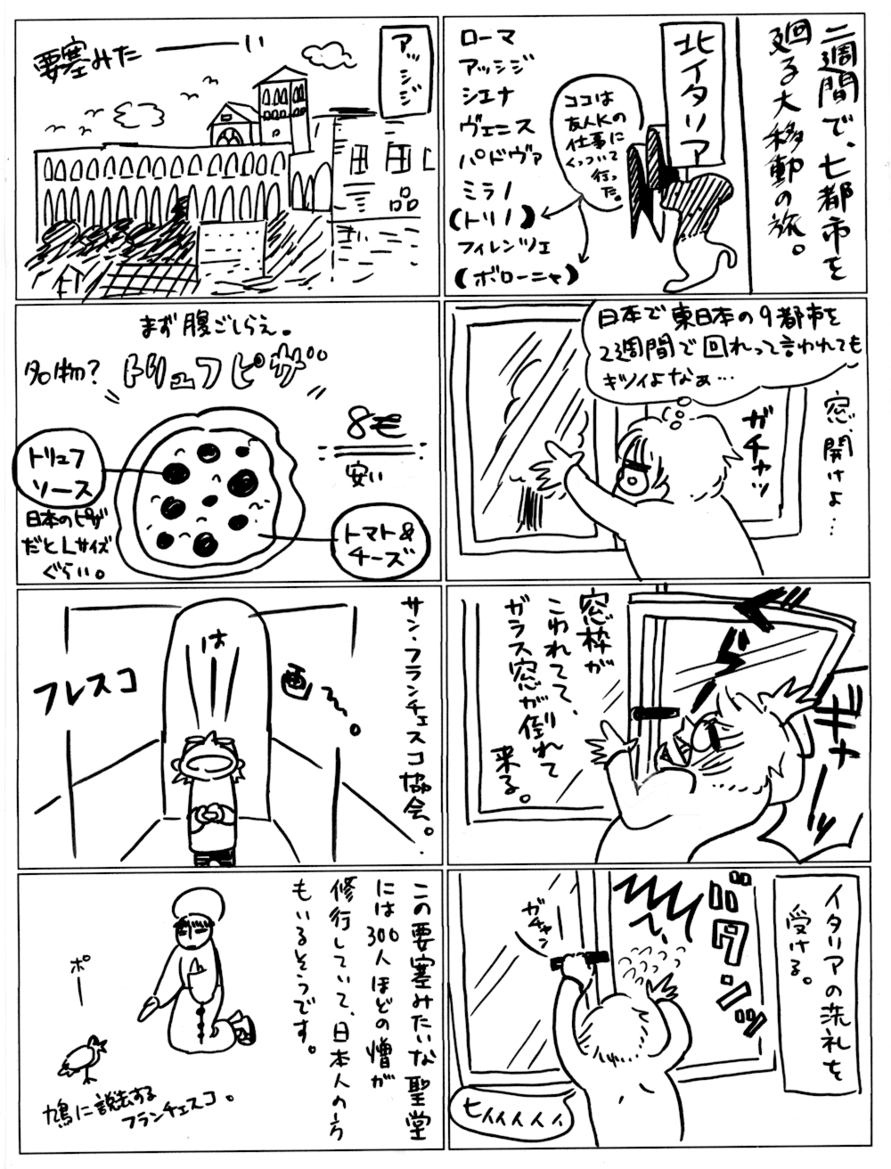 二週間で、七都市を
廻る大移動の旅。
北イタリア
ココは
友人Kの
仕事に
くっついて
行った。
ローマ
アッシジ
シエナ
ヴェニス
パドヴァ
ミラノ
(トリノ)
フィレンツェ
(ボローニャ)
日本で東日本の9都市を
2週間で回れって言われても
キツイよなぁ…
窓、開けよ…
ガチャッ
窓枠が
こわれてて、
ガラス窓が倒れて
来る。
ギャーッ
イタリアの洗礼を
受ける。
バタンッ
ガチャン
ヒィィィィィ
アッシジ
要塞みたーい
まず腹ごしらえ。
名物?
トリュフピザ
8€
安い
トリュフ
ソース
日本のピザ
だとLサイズ
ぐらい。
トマト&
チーズ
サン・フランチェスコ協会。
は
フレスコ
画〜。
この要塞みたいな聖堂
には300人ほどの憎が
修行していて、日本人の方
もいるそうです。
ポー
鳩に説法する
フランチェスコ。